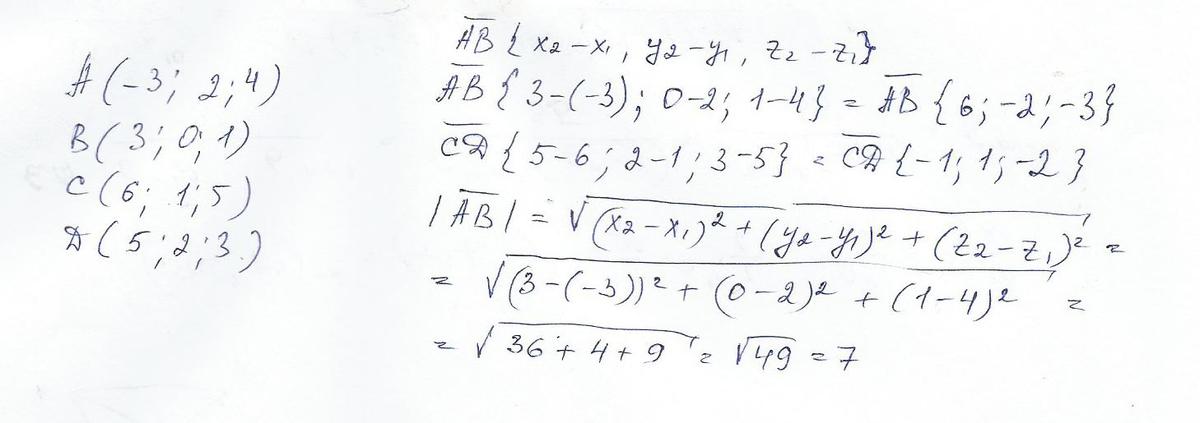 A(-3; 2; 4)
B(3; 0; 1)
C(6; 1; 5)
D(5; 2; 3.)
A̅B̅ { x₂-x₁, y₂-y₁, z₂-z₁}
A̅B̅ { 3-(-3); 0-2; 1-4} = A̅B̅ {6; -2; -3}
C̅D̅ { 5-6; 2-1; 3-5} = C̅D̅ {-1; 1; -2}
|A̅B̅| = √(x₂-x₁)² + (y₂-y₁)² + (z₂-z₁)² =
= √(3-(-3))² + (0-2)² + (1-4)² =
= √36+4+9 = √49 = 7